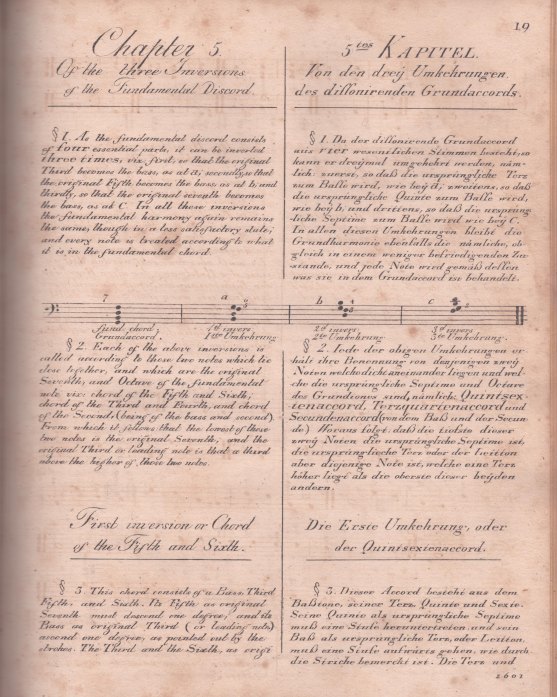 19
Chapter 5.
Of the three Inversions
of the Fundamental Discord.
§ 1. As the fundamental discord consists
of four essential parts, it can be inverted
three times; viz: first, so that the original
Third becomes the bass, as at a; secondly, so that
the original Fifth becomes the bass, as at b, and
thirdly, so that the original seventh becomes
the bass, as at C. In all these inversions
the fundamental harmony again remains
the same, though in a less satisfactory state;
and every note is treated according to what
it is in the fundamental chord.
5tes KAPITEL.
Von den dreÿ Umkehrungen
des dissonirenden Grundaccords.
§ 1. Da der dissonirende Grundaccord
aus vier wesentlichen Stimmen besteht, so
kann er dreÿmal umgekehrt werden, näm-
lich: zuerst, so daß die ursprüngliche Terz
zum Baße wird, wie beÿ a; zweitens, so daß
die ursprüngliche Quinte zum Baße wird,
wie beÿ b, und drittens, so daß die ursprüng-
liche Septime zum Baße wird wie beÿ C.
In allen diesen Umkehrungen bleibt die
Grundharmonie ebenfalls die nämliche, ob-
gleich in einem weniger befriedigenden Zu-
stande, und jede Note wird gemäß dessen
was sie in dem Grundaccord ist behandelt.
7 a 6 5 b 4 3 c 4 2
fund. chord; 1st invers. 2d invers. 3d invers.
Grundaccord. 1ste Umkehrung 2te Umkehrung 3te Umkehrung.
§ 2. Each of the above inversions is
called according to those two notes which lie
close together, and which are the original
Seventh, and Octave of the fundamental
note viz: chord of the Fifth and Sixth,
chord of the Third and Fourth, and chord
of the Second, (being of the bass and second)
From which it follows: that the lowest of these
two notes is the original Seventh; and the
original Third or leading note is that a third
above the higher of those two notes.
§ 2. Jede der obigen Umkehrungen er-
hält ihre Benennung von denjenigen zweÿ
Noten welche dicht aneinander liegen und wel-
che die ursprüngliche Septime und Octave
des Grundtones sind, nämlich: Quintsex-
tenaccord, Terzquartenaccord und
Secundenaccord (von dem Baß und der Secun-
de) Woraus folgt, daß die tiefste dieser
zweÿ Noten die ursprüngliche Septime ist,
die ursprüngliche Terz oder der Leitton
aber diejenige Note ist, welche eine Terz
höher liegt als die oberste dieser beÿden
andern.
First inversion or Chord
of the Fifth and Sixth.
§ 3. This chord consists of a Bass, Third
Fifth, and Sixth. Its Fifth as original
Seventh must descend one degree; and its
Bass as original Third (or leading note)
ascend one degree, as pointed out by the
strokes. The Third and the Sixth, as origi
Die Erste Umkehrung, oder
der Quintsextenaccord.
§ 3. Dieser Accord besteht aus dem
Baßtone, seiner Terz, Quinte und Sexte.
Seine Quinte als ursprüngliche Septime
muß eine Stufe heruntertreten, und sein
Baß als ursprüngliche Terz, oder Leitton,
muß eine Stufe aufwärts gehen, wie durch
die Striche bemerckt ist. Die Terz und
1601